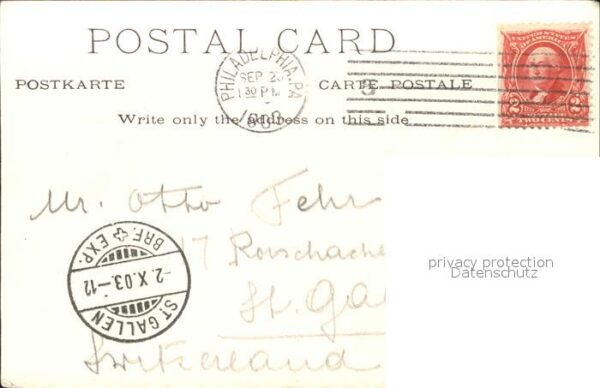 POSTAL CARD
POSTKARTE CARTE POSTALE
Write only the address on this side
PHILADELPHIA, PA.
SEP
1 30 PM
UNITED STATES
OF AMERICA
2 2
TWO CENTS
Mr. Otto Fehr
17 Rorschache
St. Ga
Switzerland
BRF. EXP.
-2.X.03.-12
ST. GALLEN
privacy protection
Datenschutz